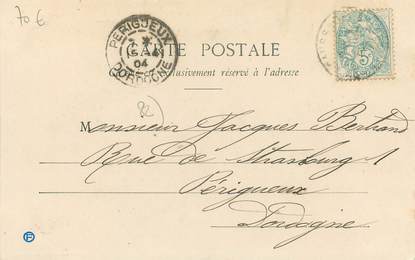 70 €
PERIGUEUX
04
DORDOGNE
CARTE POSTALE
exclusivement réservé à l'adresse
5
82
Monsieur Jacques Bertrand
Rue de Strasburg 1
Périgueux
Dordogne